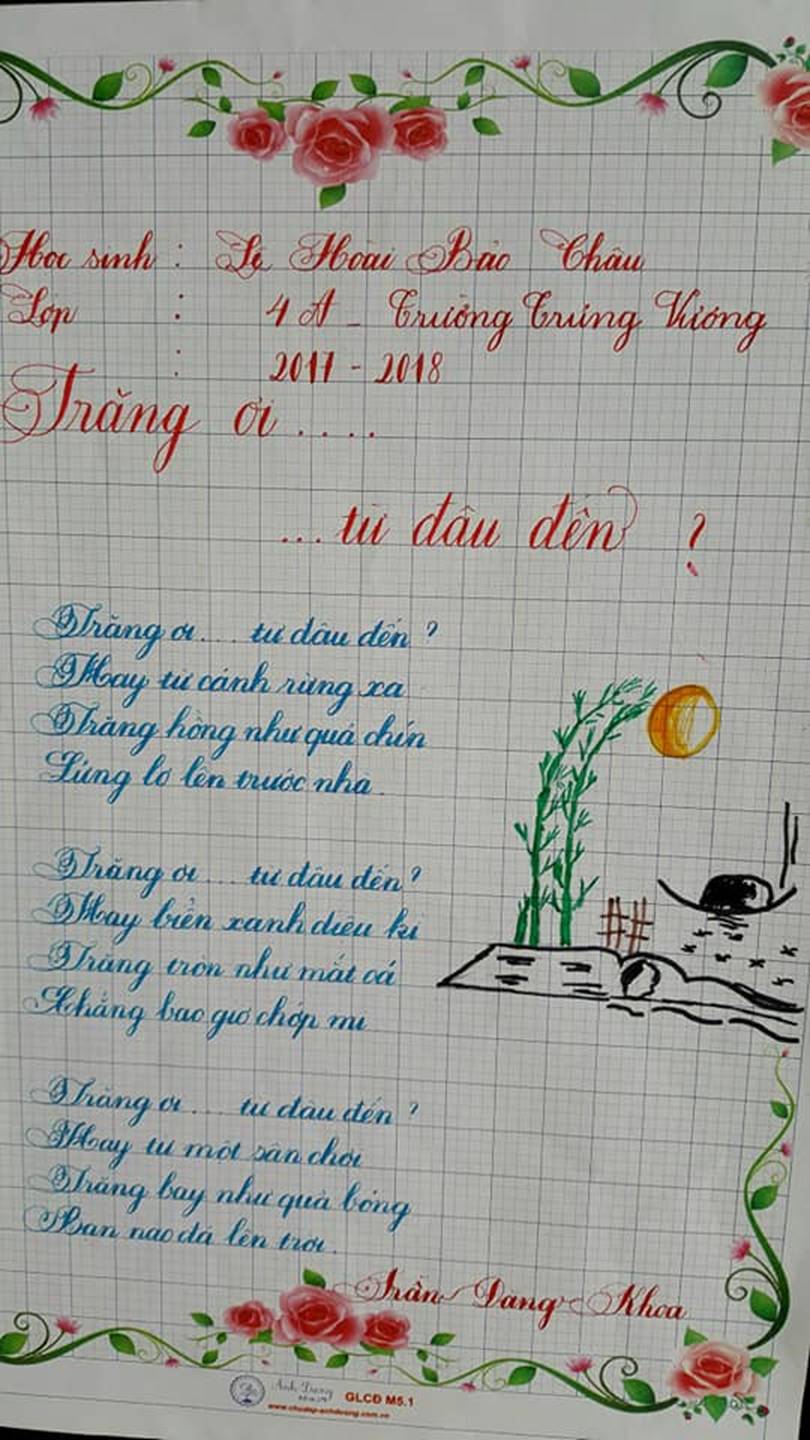 Học sinh : Lê Hoài Bảo Châu
Lớp : 4A - Trường Trưng Vương
: 2017 - 2018
Trăng ơi....
...từ đâu đến ?
Trăng ơi.... từ đâu đến ?
Hay từ cánh rừng xa
Trăng hồng như quả chín
Lửng lơ lên trước nhà.
Trăng ơi.... từ đâu đến ?
Hay biển xanh diệu kì
Trăng tròn như mắt cá
Chẳng bao giờ chớp mi
Trăng ơi.... từ đâu đến ?
Hay từ một sân chơi
Trăng bay như quả bóng
Bạn nào đá lên trời.
Trần Đăng Khoa
GLCĐ M5.1